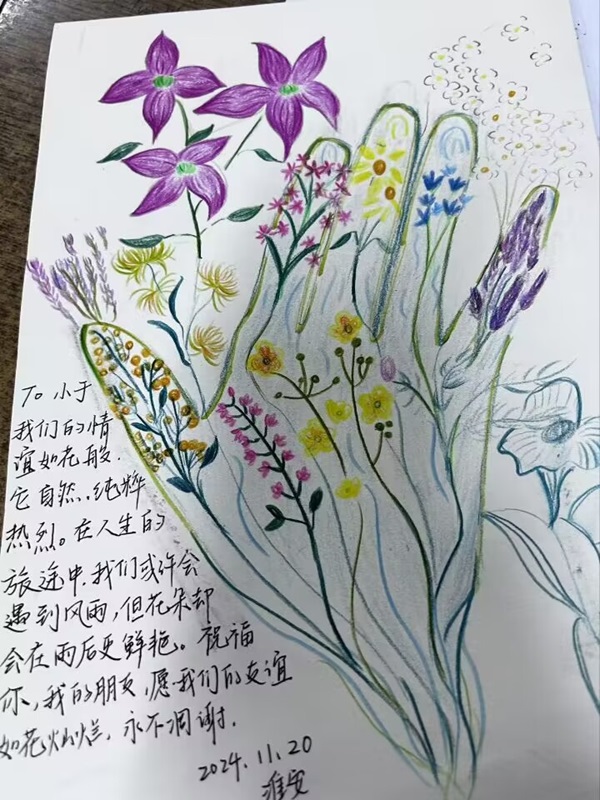 To 小于
我们的情
谊如花般.
它自然、纯粹
热烈。在人生的
旅途中,我们或许会
遇到风雨,但花朵却
会在雨后更鲜艳。祝福
你,我的朋友,愿我们的友谊
如花灿烂,永不凋谢.
2024.11.20
淮安